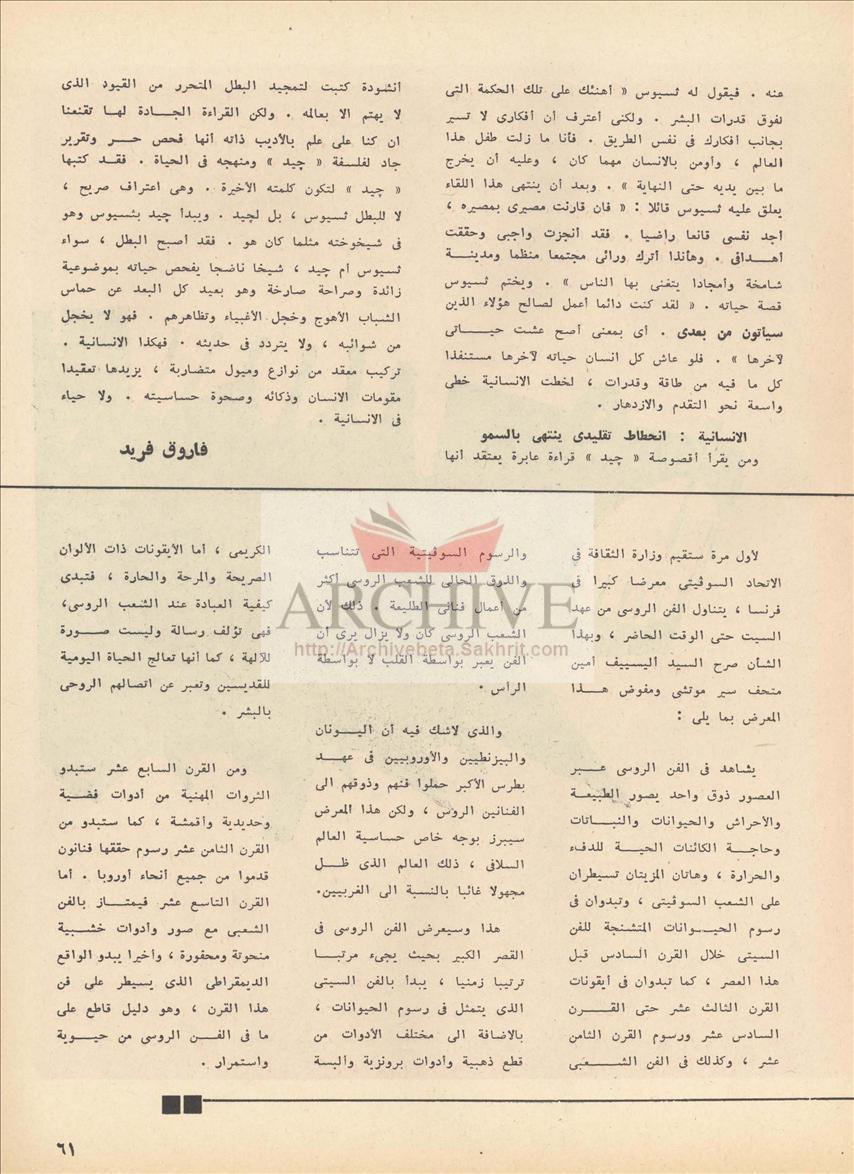 عنه . فيقول له ثسيوس « أهنئك على تلك الحكمة التى
لفوق قدرات البشر . ولكنى أعترف أن أفكارى لا تسير
بجانب أفكارك فى نفس الطريق . فأنا ما زلت طفل هذا
العالم ، وأومن بالانسان مهما كان ، وعليه أن يخرج
ما بين يديه حتى النهاية » . وبعد أن ينتهى هذا اللقاء
يعلق عليه ثسيوس قائلا : « فان قارنت مصيرى بمصيره ،
أجد نفسى قانعا راضيا . فقد أنجزت واجبى وحققت
أهدافى . وهأنذا أترك ورائى مجتمعا منظما ومدينة
شامخة وأمجادا يتغنى بها الناس » . ويختم ثسيوس
قصة حياته . « لقد كنت دائما أعمل لصالح هؤلاء الذين
سيأتون من بعدى . أى بمعنى أصح عشت حياتى
لآخرها » . فلو عاش كل انسان حياته لآخرها مستنفدا
كل ما فيه من طاقة وقدرات ، لخطت الانسانية خطى
واسعة نحو التقدم والازدهار .
الانسانية : انحطاط تقليدى ينتهى بالسمو
ومن يقرأ أقصوصة « چيد » قراءة عابرة يعتقد أنها
أنشودة كتبت لتمجيد البطل المتحرر من القيود الذى
لا يهتم الا بعالمه . ولكن القراءة الجادة لها تقنعنا
ان كنا على علم بالأديب ذاته أنها فحص حر وتقرير
جاد لفلسفة « چيد » ومنهجه فى الحياة . فقد كتبها
« چيد » لتكون كلمته الأخيرة . وهى اعتراف صريح ،
لا للبطل ثسيوس ، بل لچيد . ويبدأ چيد بثسيوس وهو
فى شيخوخته مثلما كان هو . فقد أصبح البطل ، سواء
ثسيوس أم چيد ، شيخا ناضجا يفحص حياته بموضوعية
زائدة وصراحة صارخة وهو بعيد كل البعد عن حماس
الشباب الأهوج وخجل الأغبياء وتظاهرهم . فهو لا يخجل
من شوائبه ، ولا يتردد فى حديثه . فهكذا الانسانية .
تركيب معقد من نوازع وميول متضاربة ، يزيدها تعقيدا
مقومات الانسان وذكائه وصحوة حساسيته . ولا حياء
فى الانسانية .
فاروق فريد
لأول مرة ستقيم وزارة الثقافة فى
الاتحاد السوڤيتى معرضا كبيرا فى
فرنسا ، يتناول الفن الروسى من عهد
السيت حتى الوقت الحاضر ، وبهذا
الشأن صرح السيد أليسييف أمين
متحف سير موتشى ومفوض هذا
المعرض بما يلى :
يشاهد فى الفن الروسى عبر
العصور ذوق واحد يصور الطبيعة
والأحراش والحيوانات والنباتات
وحاجة الكائنات الحية للدفء
والحرارة ، وهاتان المزيتان تسيطران
على الشعب السوڤيتى ، وتبدوان فى
رسوم الحيوانات المتشنجة للفن
السيتى خلال القرن السادس قبل
هذا العصر ، كما تبدوان فى أيقونات
القرن الثالث عشر حتى القرن
السادس عشر ورسوم القرن الثامن
عشر ، وكذلك فى الفن الشعبى
والرسوم السوڤيتية التى تتناسب
والذوق الحالى للشعب الروسى أكثر
من أعمال فنانى الطليعة . ذلك لأن
الشعب الروسى كان ولا يزال يرى أن
الفن يعبر بواسطة القلب لا بواسطة
الرأس .
والذى لاشك فيه أن اليونان
والبيزنطيين والأوروبيين فى عهد
بطرس الأكبر حملوا فنهم وذوقهم الى
الفنانين الروس ، ولكن هذا المعرض
سيبرز بوجه خاص حساسية العالم
السلافى ، ذلك العالم الذى ظل
مجهولا غائبا بالنسبة الى الغربيين.
هذا وسيعرض الفن الروسى فى
القصر الكبير بحيث يجىء مرتبا
ترتيبا زمنيا ، يبدأ بالفن السيتى
الذى يتمثل فى رسوم الحيوانات ،
بالاضافة الى مختلف الأدوات من
قطع ذهبية وأدوات برونزية وألبسة
الكريمى ، أما الأيقونات ذات الألوان
الصريحة والمرحة والحارة ، فتبدى
كيفية العبادة عند الشعب الروسى،
فهى تؤلف رسالة وليست صورة
للآلهة ، كما أنها تعالج الحياة اليومية
للقديسين وتعبر عن اتصالهم الروحى
بالبشر .
ومن القرن السابع عشر ستبدو
الثروات المهنية من أدوات فضية
وحديدية وأقمشة ، كما ستبدو من
القرن الثامن عشر رسوم حققها فنانون
قدموا من جميع أنحاء أوروبا . أما
القرن التاسع عشر فيمتاز بالفن
الشعبى مع صور وأدوات خشبية
منحوتة ومحفورة ، وأخيرا يبدو الواقع
الديمقراطى الذى يسيطر على فن
هذا القرن ، وهو دليل قاطع على
ما فى الفن الروسى من حيوية
واستمرار .
ARCHIVE
http://Archivebeta.Sakhrit.com
٦١